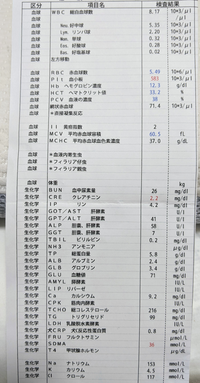 区分 項目名 検査結果
血球 WBC 総白血球数 8.17 10^3/μl
血球 Neu.好中球 5.35 10^3/μl
血球 Lym.リンパ球 2.20 10^3/μl
血球 Mon.単球 0.32 10^3/μl
血球 Eos.好酸球 0.28 10^3/μl
血球 Bas.好塩基球 0.02 10^3/μl
血球 左方移動
血球 RBC 赤血球数 5.49 10^6/μl
血球 Plt 血小板 583 10^3/μl
血球 Hb ヘモグロビン濃度 12.3 g/dl
血球 HCT ヘマトクリット値 33.2 %
血球 PCV 血液の濃度 38 %
血球 網状赤血球 71.4 10^3/μl
血球 *赤血球凝集反応
血球 II 黄疸指数 2
血球 MCV 平均赤血球容積 60.5 fL
血球 MCHC 平均赤血球血色素濃度 37.0 g/dL
血球 *血液内寄生虫
血球 *フィラリア仔虫
血球 *フィラリア親虫
血球 体重 kg
生化学 BUN 血中尿素窒素 26 mg/dl
生化学 CRE クレアチニン 2.2 mg/dl
生化学 IP リン 4.2 mg/dl
生化学 GOT/AST 肝酵素 U/l
生化学 GPT/ALT 肝酵素 41 U/l
生化学 ALP 胆道、肝酵素 58 U/l
生化学 GGT 胆道、肝酵素 7 U/l
生化学 TBIL ビリルビン 0.2 mg/dl
生化学 NH3 アンモニア μg/dl
生化学 TP 総蛋白質 5.8 g/dl
生化学 ALB アルブミン 2.4 g/dl
生化学 GLB グロブリン 3.4 g/dl
生化学 GLU 血糖値 71 mg/dl
生化学 AMYL 膵酵素 IU/L
生化学 LIP リパーゼ IU/L
生化学 Ca カルシウム 9.2 mg/dl
生化学 CPK 筋肉内酵素 IU/L
生化学 TCHO 総コレステロール 216 mg/dl
生化学 TG トリグリセリド 99 mg/dl
生化学 LDH 乳酸脱水素酵素 IU/L
生化学 犬CRP 犬C反応性蛋白 0.8 mg/dl
生化学 FRU フルクトサミン μmol/L
生化学 SDMA 36
生化学 T4 甲状腺ホルモン μg/dL
生化学 Na ナトリウム 153 mmol/L
生化学 K カリウム 4.5 mmol/L
生化学 Cl クロール 117 mmol/L